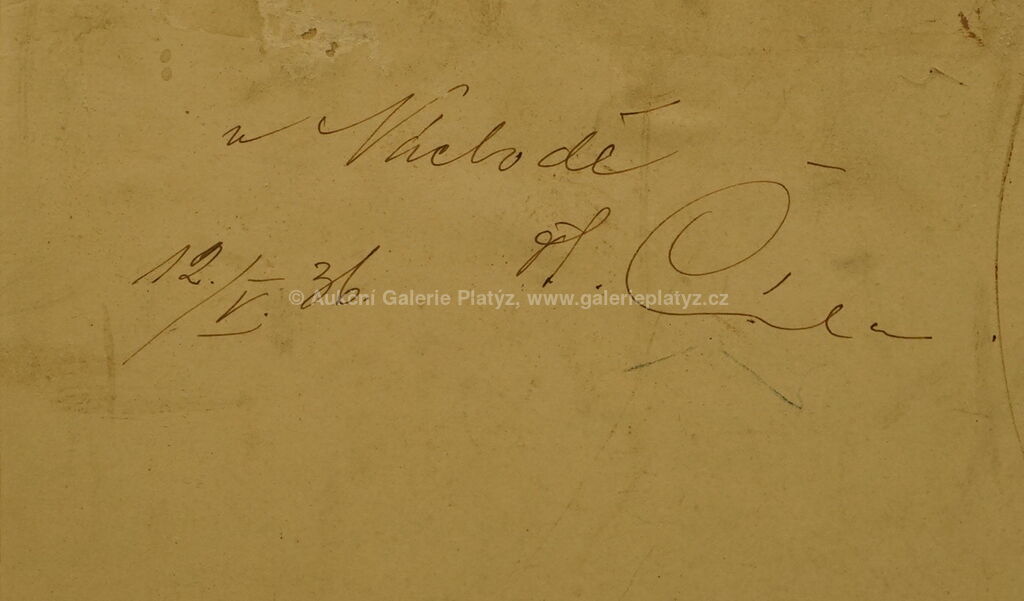 v Náchodě
12./V. 36. A. Cíla
© Aukční Galerie Platýz, www.galerieplatyz.cz